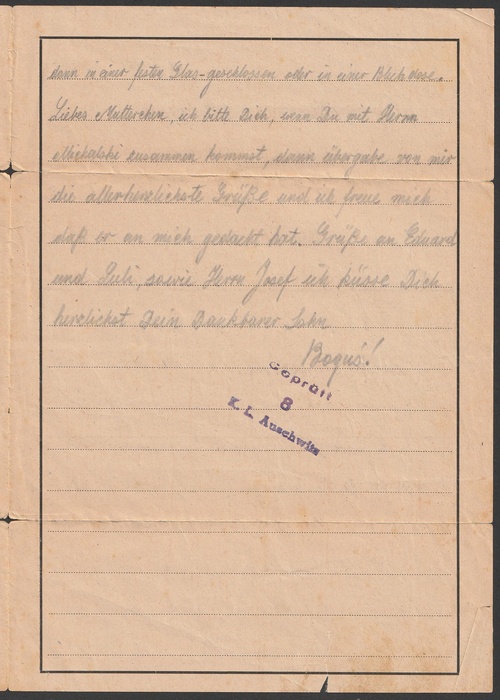 dann in einer festen Glas-geschlossen oder in einer Blechdose.
Liebes Mutterchen, ich bitte Dich, wenn Du mit Herrn
Michalski zusammen kommst, dann übergabe von mir
die allerherzlichste Grüße und ich freue mich
daß er an mich gedackt hat. Grüße an Eduard
und Luli, sowie Herrn Josef ich küsse Dich
herzlichst Dein Dankbarer Sohn
Boguś!
Geprüft
8
K. L. Auschwitz